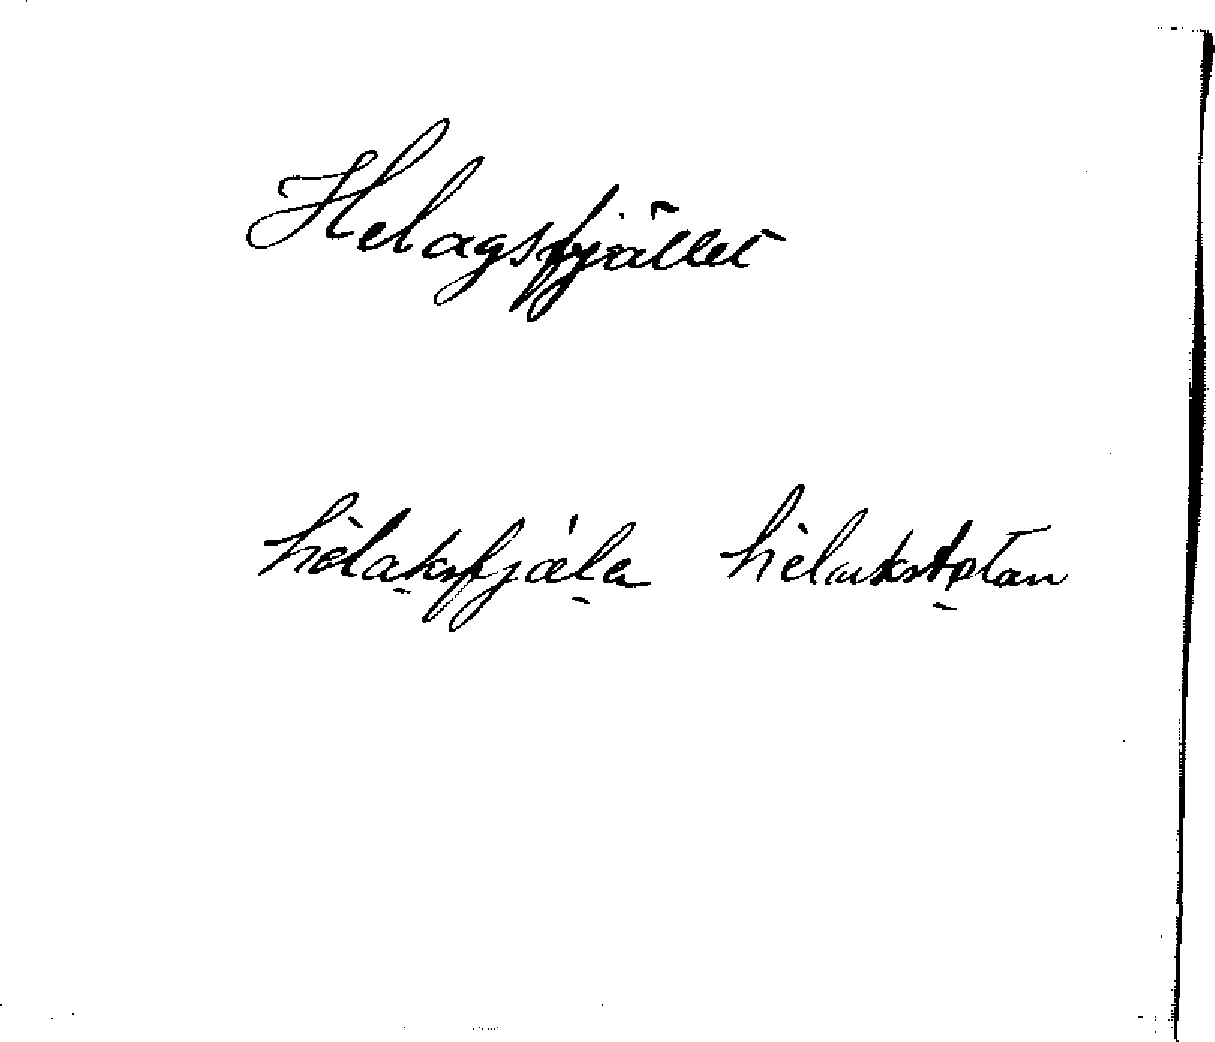 Helagsfjället
hèlaksfjæ̀la hèlakstøtan